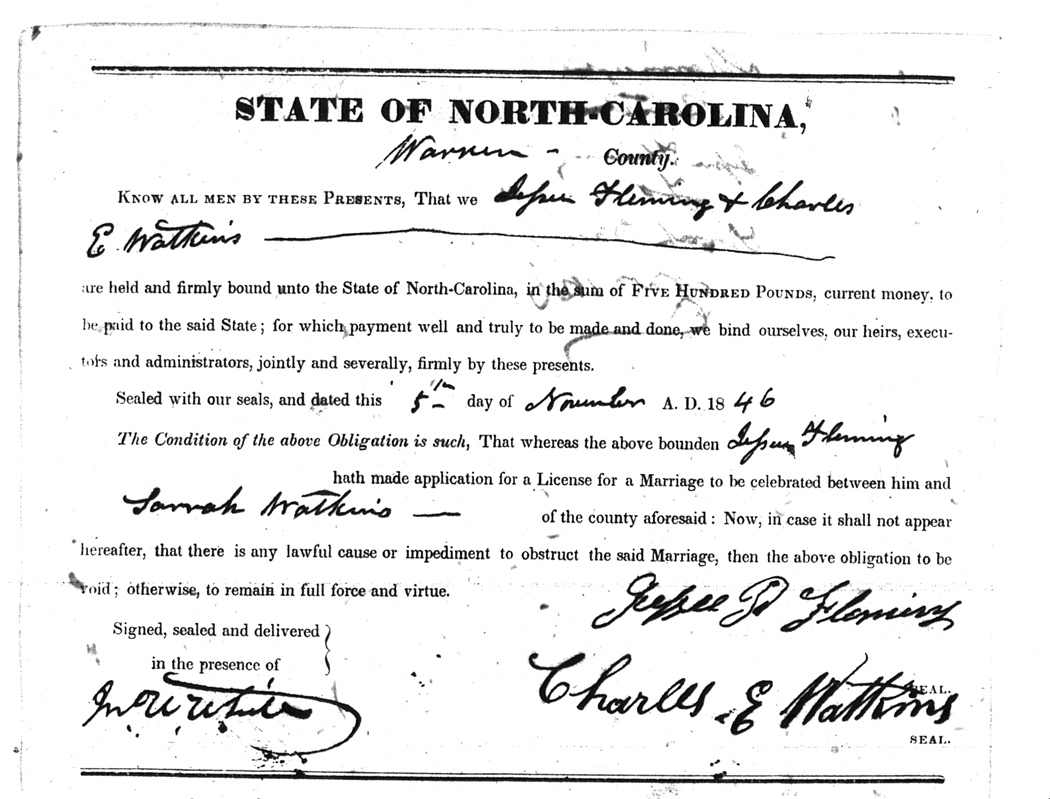 STATE OF NORTH-CAROLINA,
Warren - County.
KNOW ALL MEN BY THESE PRESENTS, That we Jesse Fleming & Charles
E. Watkins
are held and firmly bound unto the State of North-Carolina, in the sum of FIVE HUNDRED POUNDS, current money, to
be paid to the said State; for which payment well and truly to be made and done, we bind ourselves, our heirs, execu-
tors and administrators, jointly and severally, firmly by these presents.
Sealed with our seals, and dated this 5th day of November A. D. 1846
The Condition of the above Obligation is such, That whereas the above bounden Jesse Fleming
hath made application for a License for a Marriage to be celebrated between him and
Sarrah Watkins — of the county aforesaid: Now, in case it shall not appear
hereafter, that there is any lawful cause or impediment to obstruct the said Marriage, then the above obligation to be
void; otherwise, to remain in full force and virtue.
Jesse P Fleming
Signed, sealed and delivered
in the presence of
Charles E Watkins SEAL.
Jno W White
SEAL.